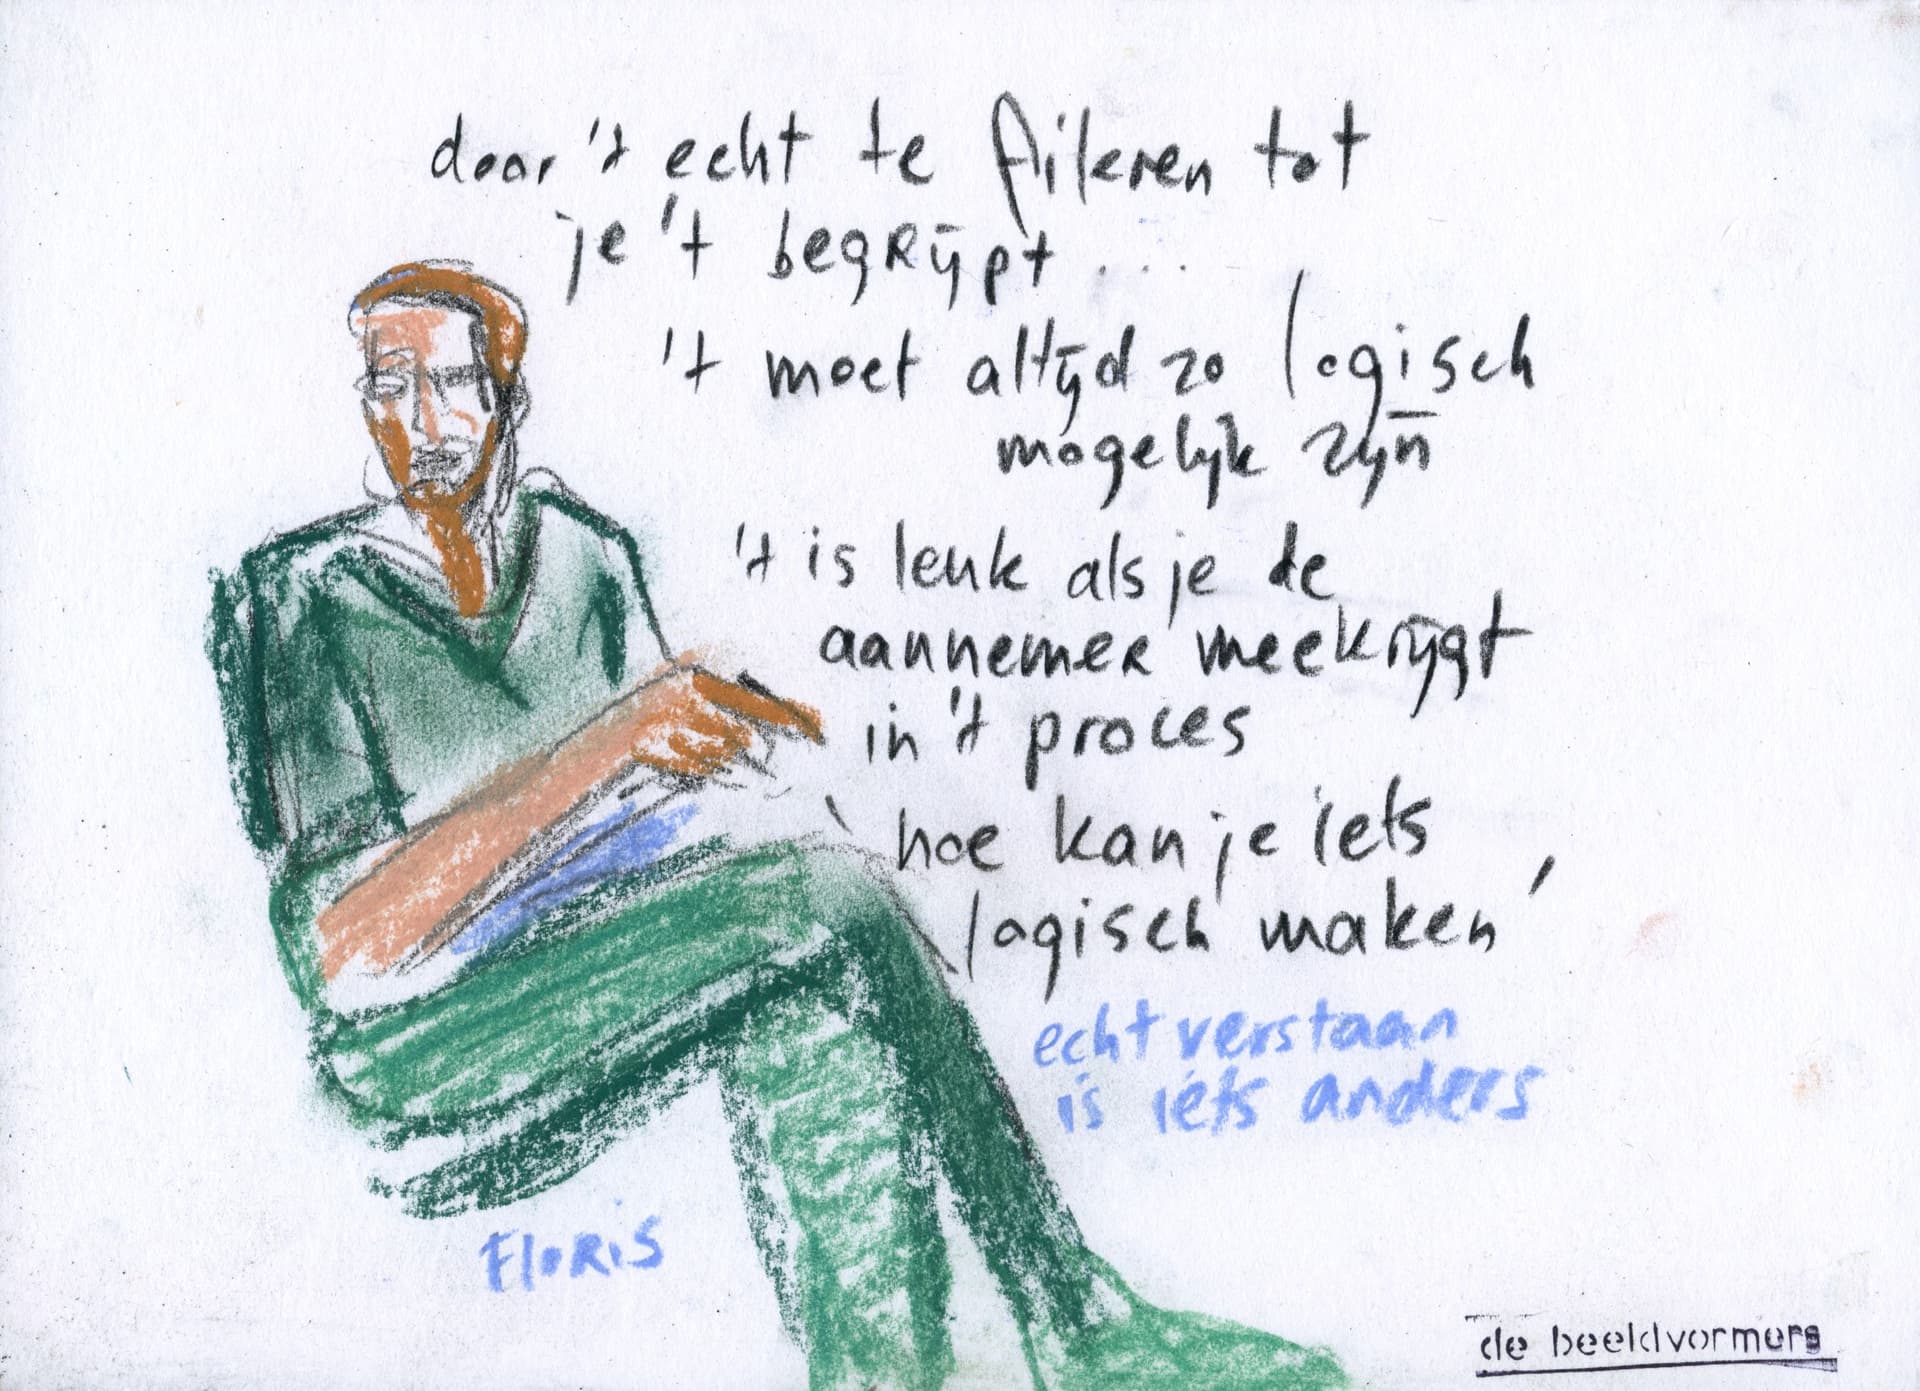 door 't echt te fileren tot
je 't begrijpt...
't moet altijd zo logisch
mogelijk zijn
't is leuk als je de
aannemer meekrijgt
in 't proces
'hoe kan je iets
logisch maken'
echt verstaan
is iets anders
Floris
de beeldvormers